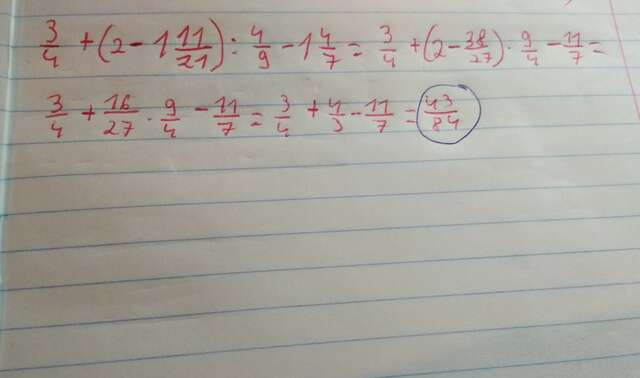 3/4 + (2 - 1 11/21) : 4/9 - 1 4/7 = 3/4 + (2 - 38/27) · 9/4 - 11/7 =
3/4 + 16/27 · 9/4 - 11/7 = 3/4 + 4/3 - 11/7 = 43/84